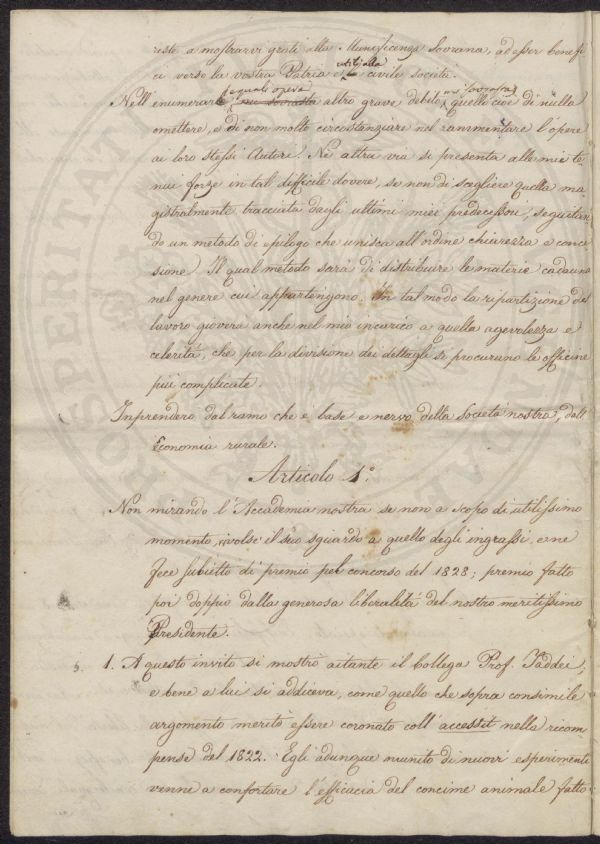 reste a mostrarvi grati alla Munificenza Sovrana, ad esser benefi
ci verso la vostra Patria e utili alla civile società.
Nell'enumerare equali opere altro grave debito mi sovrasta quello cioè di nulla
omettere, e di non molto circostanziare nel rammentare l'opere
ai loro stessi Autori. Nè altra via si presenta alle mie te
nui forze in tal difficile dovere, se non di scegliere quella ma
gistralmente tracciata dagli ultimi miei predecessori, seguitan
do un metodo di epilogo che unisca all'ordine chiarezza e conci
sione. Il qual metodo sarà di distribuire le materie cadauna
nel genere cui appartengono. In tal modo la ripartizione del
lavoro gioverà anche nel mio incarico a quella agevolezza e
celerità, che per la divisione dei dettagli si procurano le officine
più complicate.
Inprenderò dal ramo che è base e nervo della Società nostra, dall'
Economia rurale.
Articolo 1.°
Non mirando l'Accademia nostra se non a scopo di utilissimo
momento, rivolse il suo sguardo a quello degli ingrassi, e ne
fece subietto di premio pel concorso del 1828; premio fatto
poi doppio dalla generosa liberalità del nostro meritissimo
Presidente.
1. A questo invito si mostrò aitante il Collega Prof. Taddei,
e bene a lui si addiceva, come quello che sopra consimile
argomento meritò essere coronato coll'accessit nella ricom
pense del 1822. Egli adunque munito di nuovi esperimenti
venne a confortare l'efficacia del concime animale fatto
PROSPERITATI